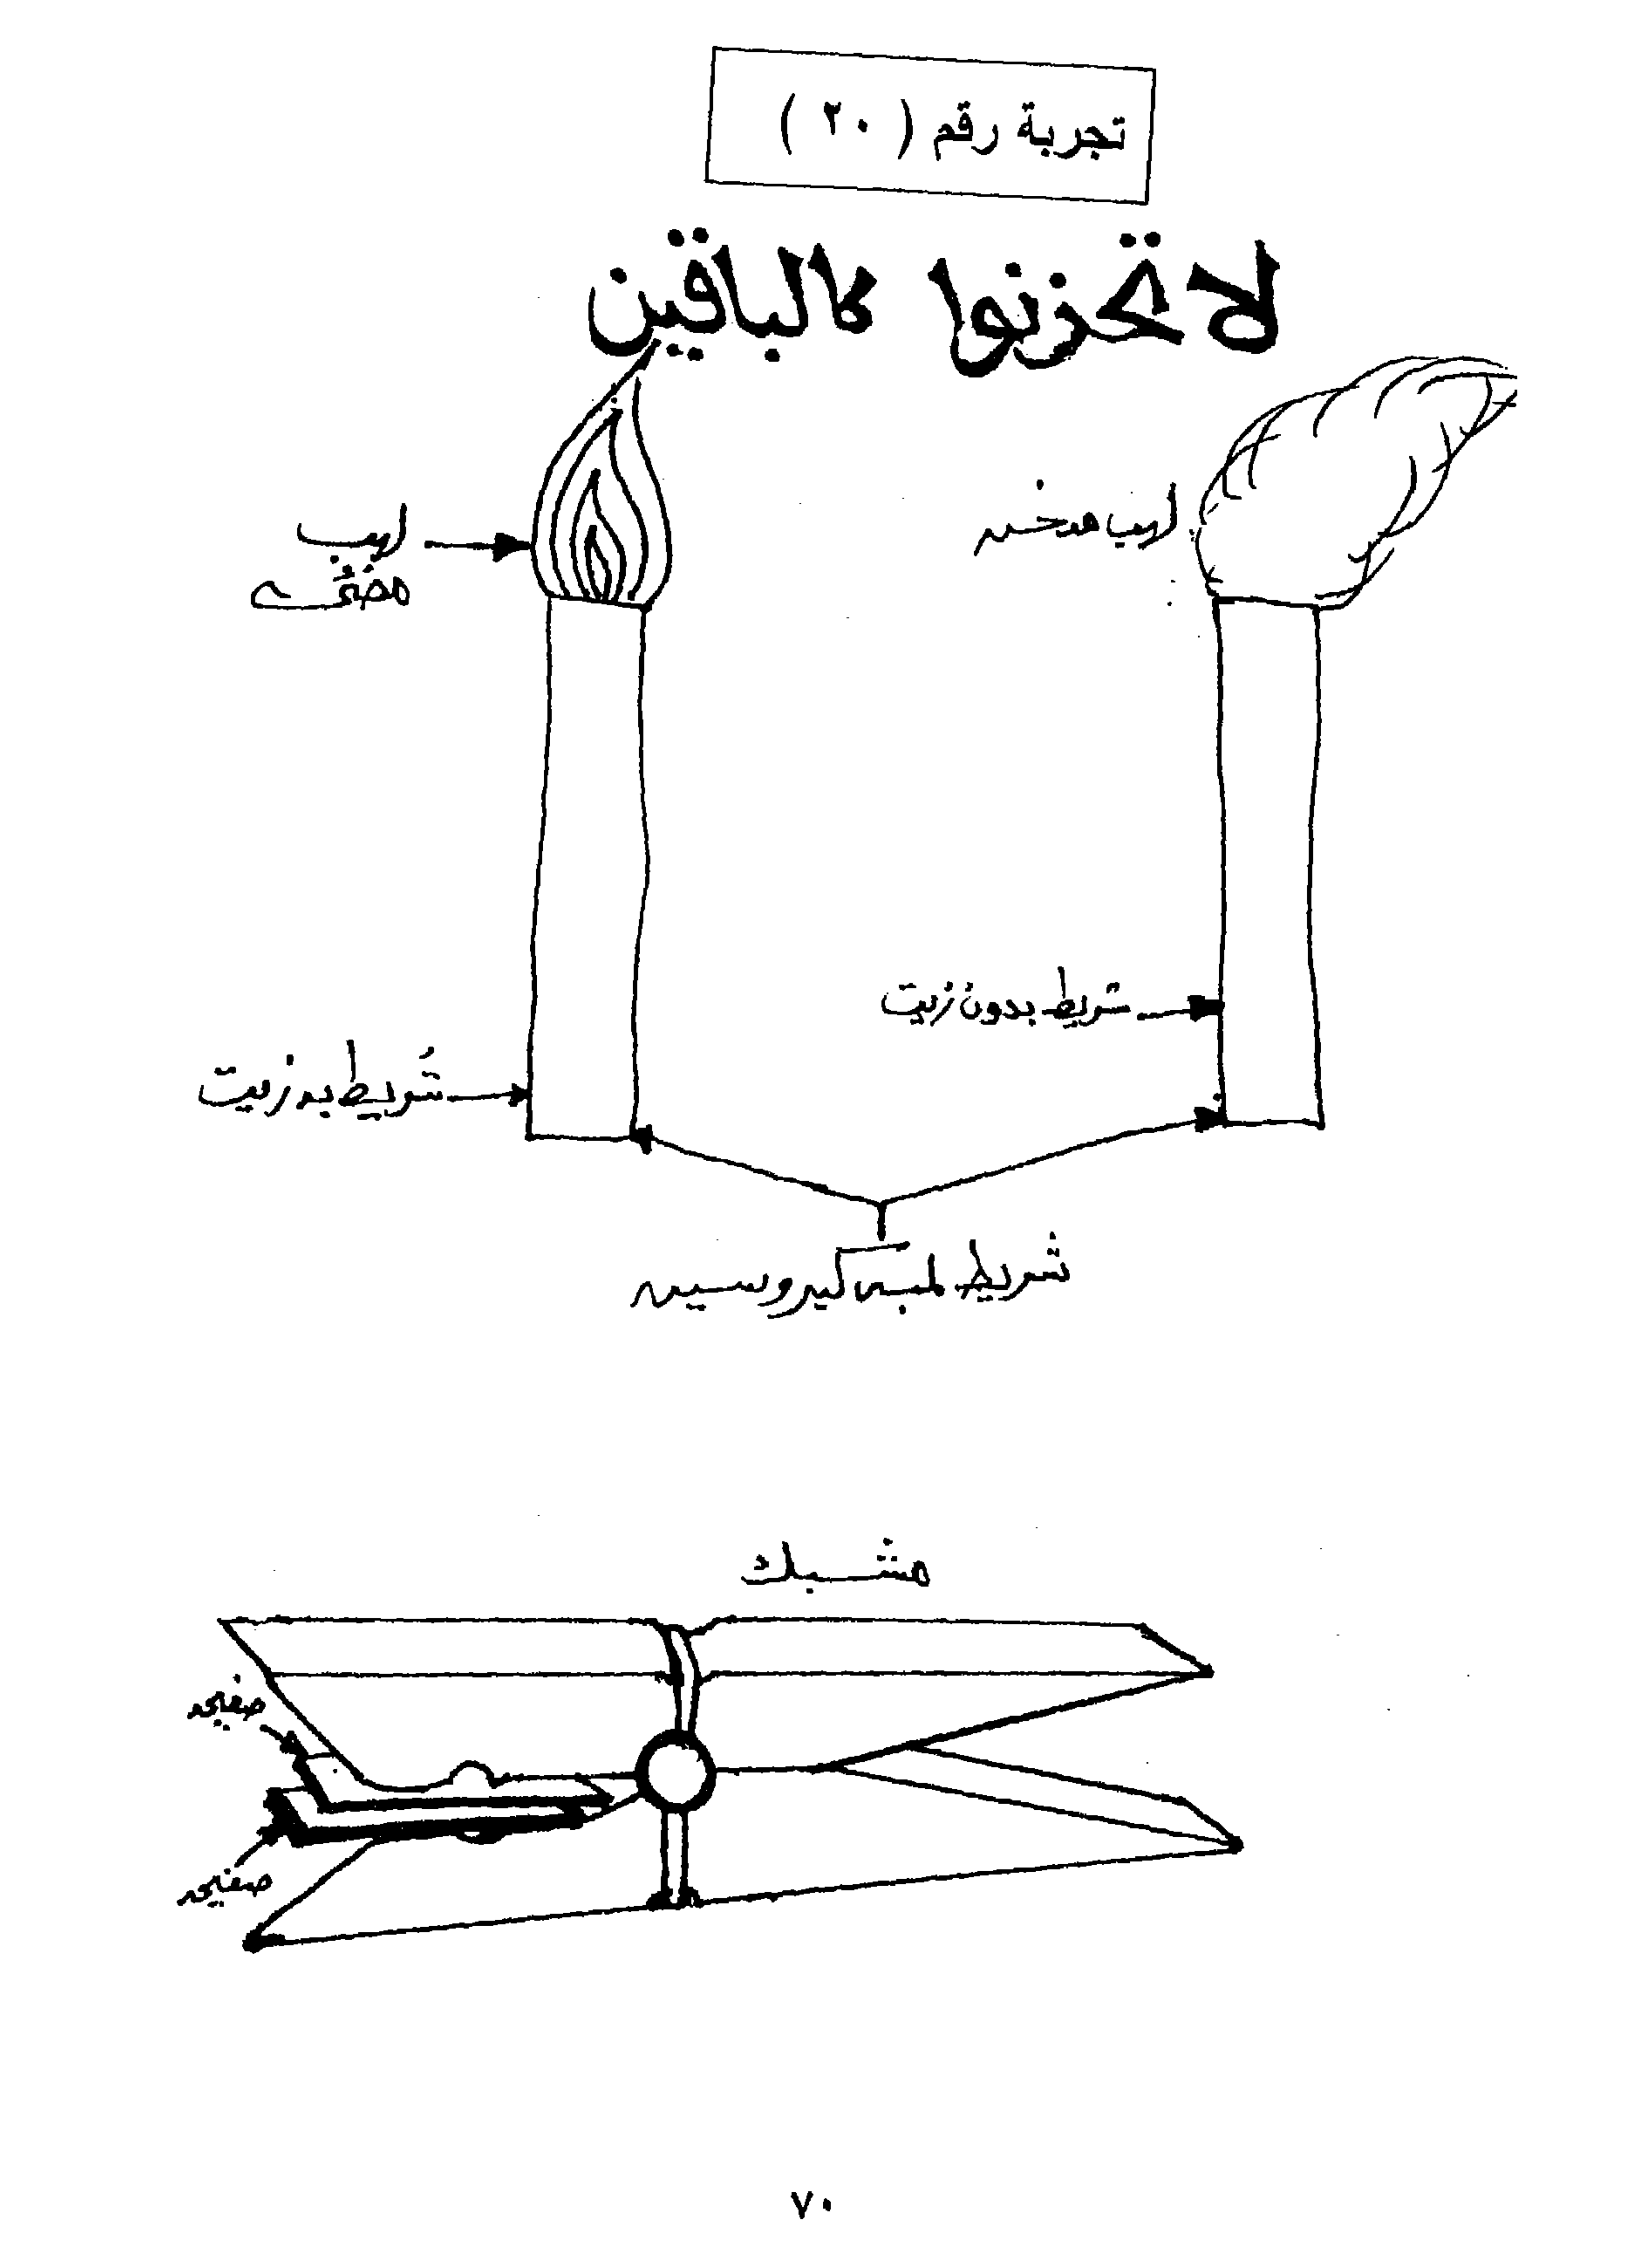 تجربة رقم ( ٢٠ )
لا تحزنوا كالباقين
لهب مدخن
لهب
مضئ
شريط بدون زيت
شريط به زيت
شريط لمبه كيروسين
مشبك
صفيحه
صفيحه
٧٠